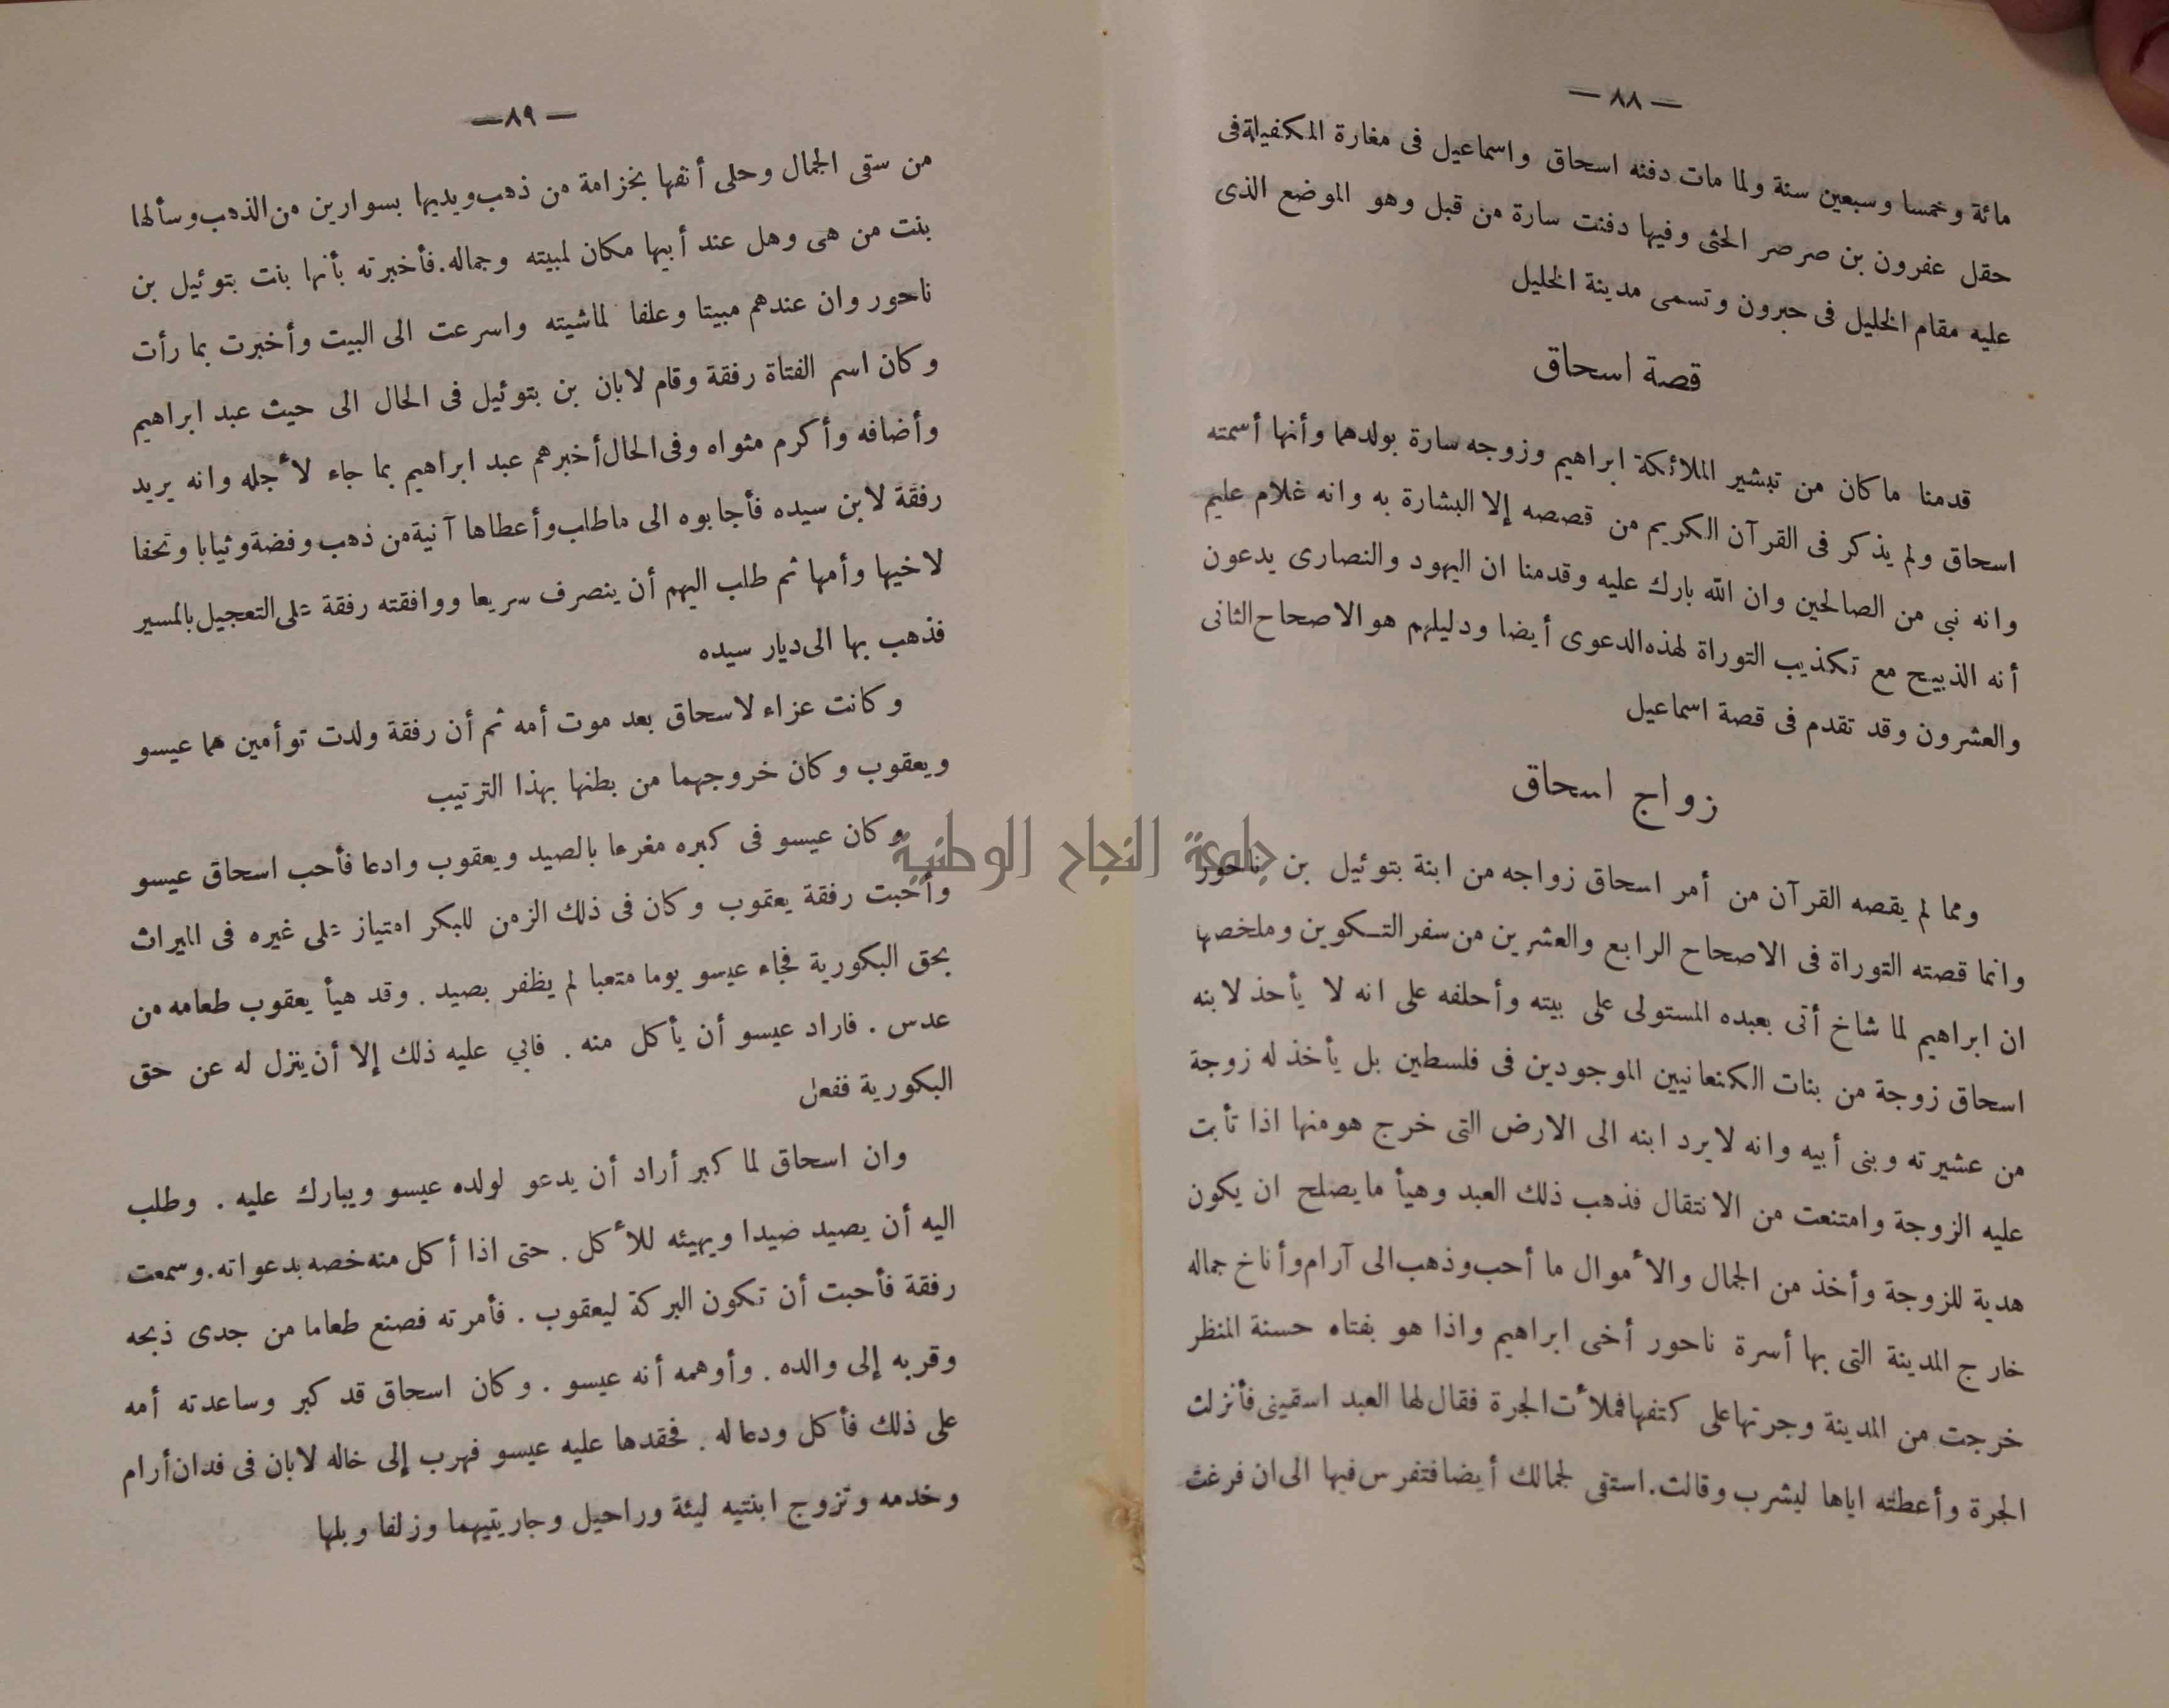 — ٨٨ —
مائة وخمسا وسبعين سنة ولما مات دفنه اسحاق واسماعيل فى مغارة المكفيلة فى
حقل عفرون بن صرصر الحثى وفيها دفنت سارة من قبل وهو الموضع الذى
عليه مقام الخليل فى حبرون وتسمى مدينة الخليل
قصة اسحاق
قدمنا ما كان من تبشير الملائكة ابراهيم وزوجه سارة بولدهما وأنها أسمته
اسحاق ولم يذكر فى القرآن الكريم من قصصه إلا البشارة به وانه غلام عليم
وانه نبى من الصالحين وان الله بارك عليه وقدمنا ان اليهود والنصارى يدعون
أنه الذبيح مع تكذيب التوراة لهذه الدعوى أيضا ودليلهم هو الاصحاح الثانى
والعشرون وقد تقدم فى قصة اسماعيل
زواج اسحاق
ومما لم يقصه القرآن من أمر اسحاق زواجه من ابنة بتوئيل بن ناحور
وانما قصته التوراة فى الاصحاح الرابع والعشرين من سفر التكوين وملخصها
ان ابراهيم لما شاخ أتى بعبده المستولى على بيته وأحلفه على انه لا يأحذ لابنه
اسحاق زوجة من بنات الكنعانيين الموجودين فى فلسطين بل يأخذ له زوجة
من عشيرته وبنى أبيه وانه لا يرد ابنه الى الارض التى خرج هو منها اذا تأبت
عليه الزوجة وامتنعت من الانتقال فذهب ذلك العبد وهيأ ما يصلح ان يكون
هدية للزوجة وأخذ من الجمال والأموال ما أحب وذهب الى آرام وأناخ جماله
خارج المدينة التى بها أسرة ناحور أخى ابراهيم واذا هو بفتاه حسنة المنظر
خرجت من المدينة وجرتها على كتفها فملأت الجرة فقال لها العبد اسقينى فأنزلت
الجرة وأعطته اياها ليشرب وقالت. استقى لجمالك أيضا فتفرس فيها الى ان فرغت
— ٨٩ —
من سقى الجمال وحلى أنفها بخزامة من ذهب ويديها بسوارين من الذهب وسألها
بنت من هى وهل عند أبيها مكان لمبيته وجماله. فأخبرته بأنها بنت بتوئيل بن
ناحور وان عندهم مبيتا وعلفا لماشيته واسرعت الى البيت وأخبرت بما رأت
وكان اسم الفتاة رفقة وقام لابان بن بتوئيل فى الحال الى حيث عبد ابراهيم
وأضافه وأكرم مثواه وفى الحال أخبرهم عبد ابراهيم بما جاء لأجله وانه يريد
رفقة لابن سيده فأجابوه الى ما طلب وأعطاها آنية من ذهب وفضة وثيابا وتحفا
لاخيها وأمها ثم طلب اليهم أن ينصرف سريعا ووافقته رفقة على التعجيل بالمسير
فذهب بها الى ديار سيده
وكانت عزاء لاسحاق بعد موت أمه ثم أن رفقة ولدت توأمين هما عيسو
ويعقوب وكان خروجهما من بطنها بهذا الترتيب
وكان عيسو فى كبره مغرما بالصيد ويعقوب وادعا فأحب اسحاق عيسو
وأحبت رفقة يعقوب وكان فى ذلك الزمن للبكر امتياز على غيره فى الميراث
بحق البكورية فجاء عيسو يوما متعبا لم يظفر بصيد. وقد هيأ يعقوب طعامه من
عدس. فاراد عيسو أن يأكل منه. فابي عليه ذلك إلا أن ينزل له عن حق
البكورية ففعل
وان اسحاق لما كبر أراد أن يدعو لولده عيسو ويبارك عليه. وطلب
اليه أن يصيد صيدا ويهيئه للأكل. حتى اذا أكل منه خصه بدعواته. وسمعت
رفقة فأحبت أن تكون البركة ليعقوب. فأمرته فصنع طعاما من جدى ذبحه
وقربه إلى والده. وأوهمه أنه عيسو. وكان اسحاق قد كبر وساعدته أمه
على ذلك فأكل ودعا له. فحقدها عليه عيسو فهرب إلى خاله لابان فى فدان أرام
وخدمه وتزوج ابنتيه ليئة وراحيل وجاريتيهما وزلفا وبلها
جامعة النجاح الوطنية